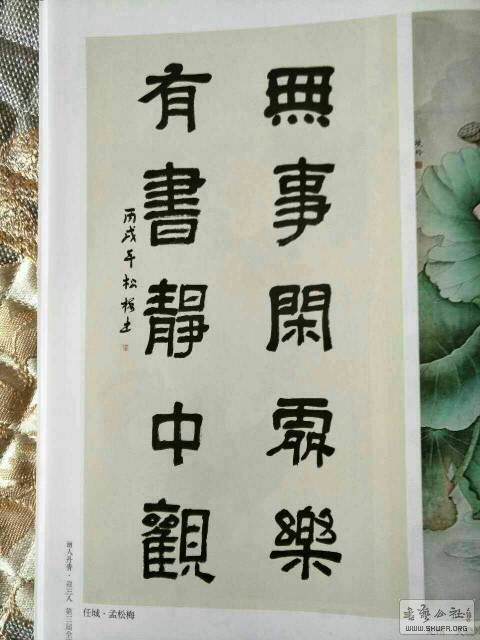 無事閑處樂
有書靜中觀
丙戌年松梅书
任城·孟松梅
第三届全
书艺公社
WWW.SHUFA.ORG